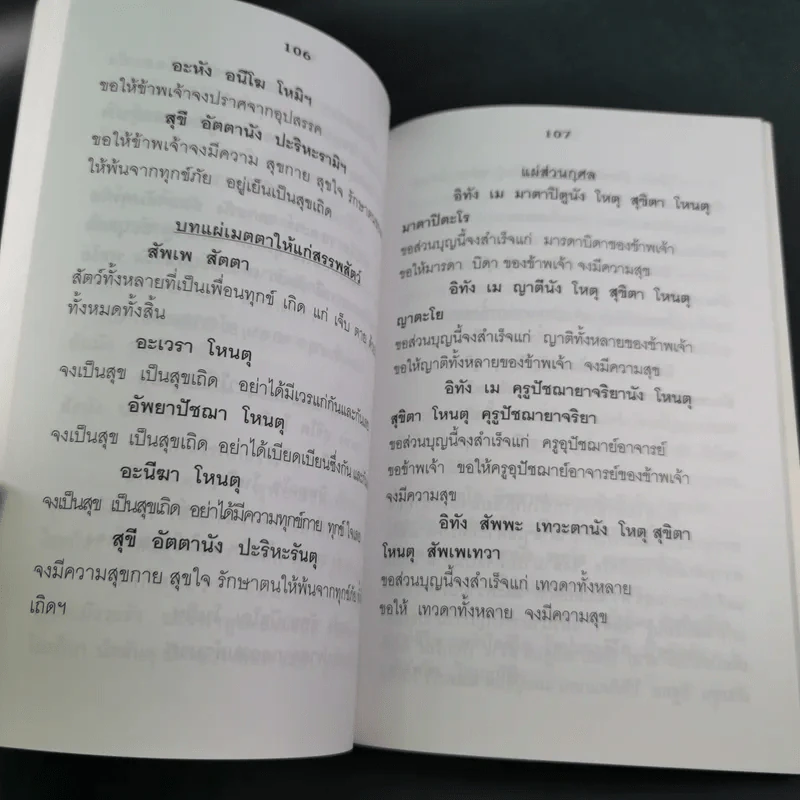 106
อะหัง อนีโฆ โหมิฯ
ขอให้ข้าพเจ้าจงปราศจากอุปสรรค
สุขี อัตตานัง ปะริหะรามิฯ
ขอให้ข้าพเจ้าจงมีความ สุขกาย สุขใจ รักษาตน
ให้พ้นจากทุกข์ภัย อยู่เย็นเป็นสุขเถิด
บทแผ่เมตตาให้แก่สรรพสัตว์
สัพเพ สัตตา
สัตว์ทั้งหลายที่เป็นเพื่อนทุกข์ เกิด แก่ เจ็บ ตาย
ทั้งหมดทั้งสิ้น
อะเวรา โหนตุ
จงเป็นสุข เป็นสุขเถิด อย่าได้มีเวรแก่กันและกัน
อัพยาปัชฌา โหนตุ
จงเป็นสุข เป็นสุขเถิด อย่าได้เบียดเบียนซึ่งกัน
อะนีฆา โหนตุ
จงเป็นสุข เป็นสุขเถิด อย่าได้มีความทุกข์กาย ทุกข์
สุขี อัตตานัง ปะริหะรันตุ
จงมีความสุขกาย สุขใจ รักษาตนให้พ้นจากทุกข์ภัย
เถิดฯ
107
แผ่ส่วนกุศล
อิทัง เม มาตาปิตูนัง โหตุ สุขิตา โหนตุ
มาตาปิตะโร
ขอส่วนบุญนี้จงสำเร็จแก่ มารดาบิดาของข้าพเจ้า
ขอให้มารดา บิดา ของข้าพเจ้า จงมีความสุข
อิทัง เม ญาตีนัง โหตุ สุขิตา โหนตุ
ญาตะโย
ขอส่วนบุญนี้จงสำเร็จแก่ ญาติทั้งหลายของข้าพเจ้า
ขอให้ญาติทั้งหลายของข้าพเจ้า จงมีความสุข
อิทัง เม คุรูปัชฌายาจริยานัง โหตุ
สุขิตา โหนตุ คุรูปัชฌายาจริยา
ขอส่วนบุญนี้จงสำเร็จแก่ ครูอุปัชฌาย์อาจารย์
ขอข้าพเจ้า ขอให้ครูอุปัชฌาย์อาจารย์ของข้าพเจ้า
จงมีความสุข
อิทัง สัพพะ เทวะตานัง โหตุ สุขิตา
โหนตุ สัพเพเทวา
ขอส่วนบุญนี้จงสำเร็จแก่ เทวดาทั้งหลาย
ขอให้ เทวดาทั้งหลาย จงมีความสุข